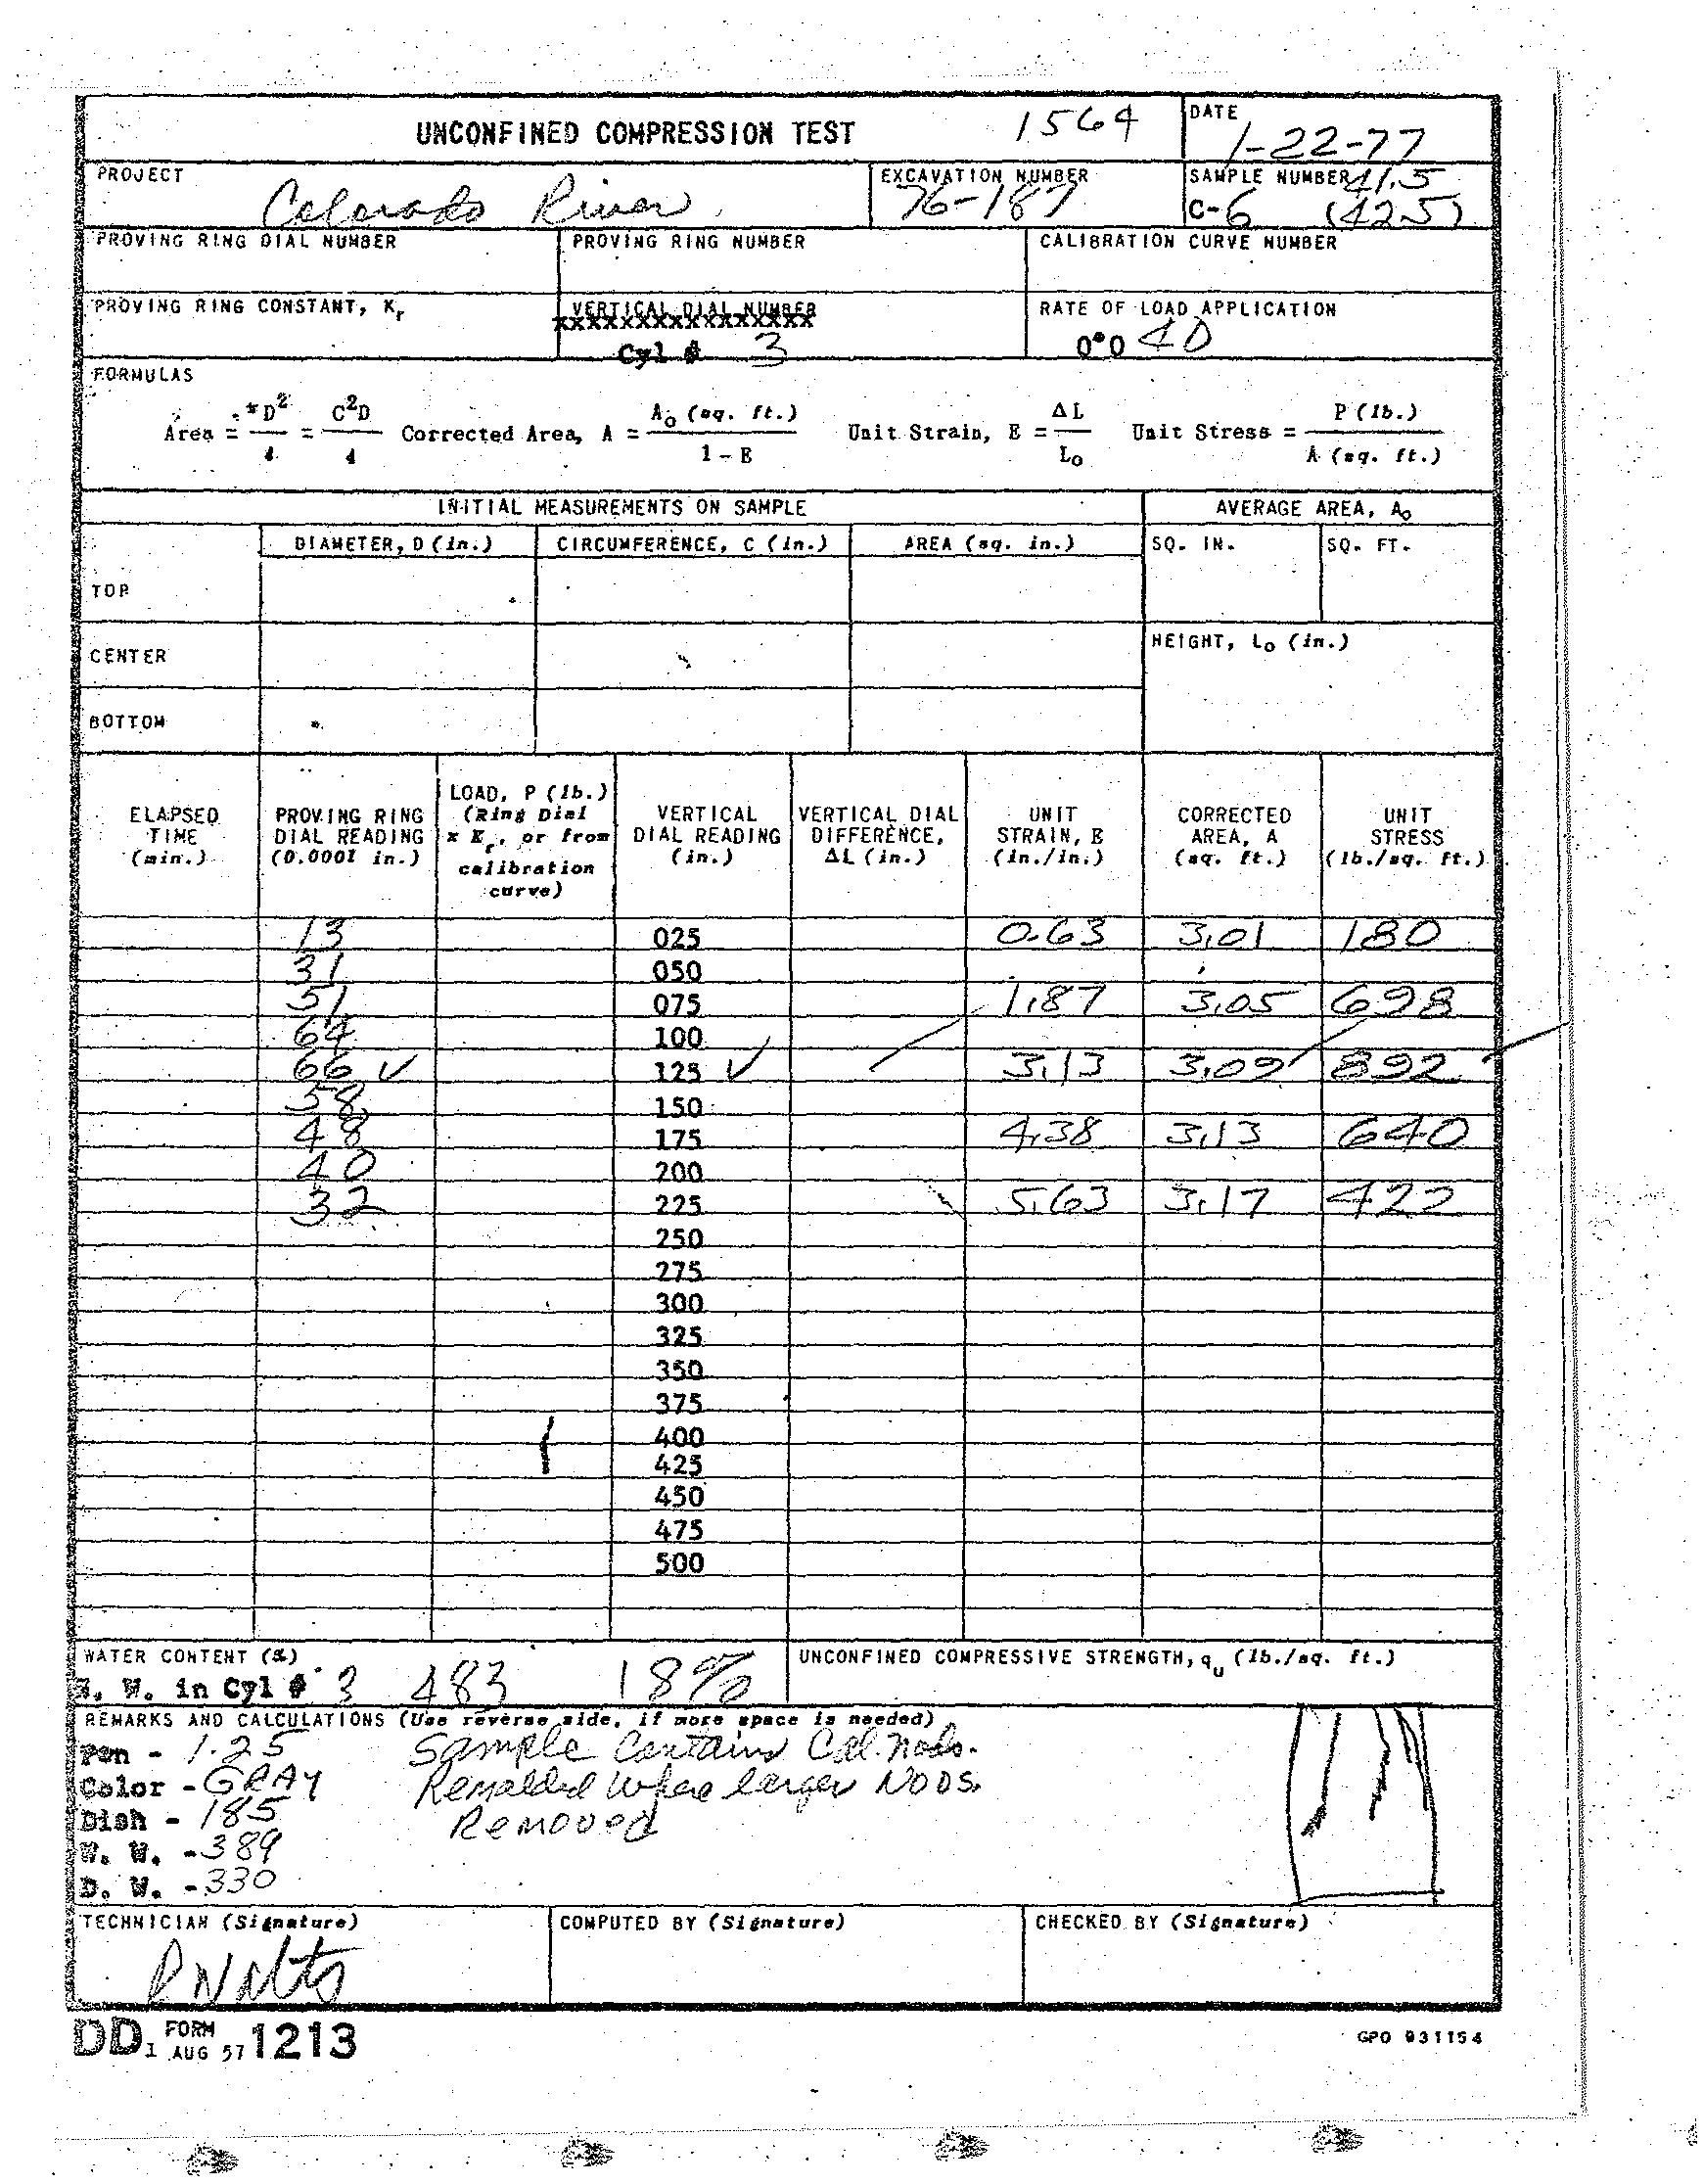 UNCONFINED COMPRESSION TEST 1564 DATE 1-22-77
PROJECT Colorado River EXCAVATION NUMBER 76-187 SAMPLE NUMBER 41.5 C-6 (42.5)
PROVING RING DIAL NUMBER PROVING RING NUMBER CALIBRATION CURVE NUMBER
PROVING RING CONSTANT, Kr VERTICAL DIAL NUMBER RATE OF LOAD APPLICATION
xxxxxxxxxxxxxxxxx
Cyl # 3 0.040
FORMULAS
Area = πD²/4 = C²D/4 Corrected Area, A = A₀ (sq. ft.)/1 - E Unit Strain, E = ΔL/L₀ Unit Stress = P (lb.)/A (sq. ft.)
INITIAL MEASUREMENTS ON SAMPLE AVERAGE AREA, A₀
DIAMETER, D (in.) CIRCUMFERENCE, C (in.) AREA (sq. in.) SQ. IN. SQ. FT.
TOP
CENTER HEIGHT, L₀ (in.)
BOTTOM
ELAPSED TIME (min.) PROVING RING DIAL READING (0.0001 in.) LOAD, P (lb.) (Ring Dial x Kr, or from calibration curve) VERTICAL DIAL READING (in.) VERTICAL DIAL DIFFERENCE, ΔL (in.) UNIT STRAIN, E (in./in.) CORRECTED AREA, A (sq. ft.) UNIT STRESS (lb./sq. ft.)
13 025 0.63 3.01 180
31 050
51 075 1.87 3.05 698
64 100
66 ✓ 125 ✓ 3.13 3.09 892
58 150
48 175 4.38 3.13 640
40 200
32 225 5.63 3.17 422
250
275
300
325
350
375
400
425
450
475
500
WATER CONTENT (%) UNCONFINED COMPRESSIVE STRENGTH, qu (lb./sq. ft.)
W. W. in Cyl # 3 483 18%
REMARKS AND CALCULATIONS (Use reverse side, if more space is needed)
Pen - 1.25 Sample Contains Cal. nods.
Color - GRAY Remolded where larger NODS.
Dish - 185 Removed
W. W. - 389
D. W. - 330
TECHNICIAN (Signature) COMPUTED BY (Signature) CHECKED BY (Signature)
DD FORM 1 AUG 57 1213 GPO 931154